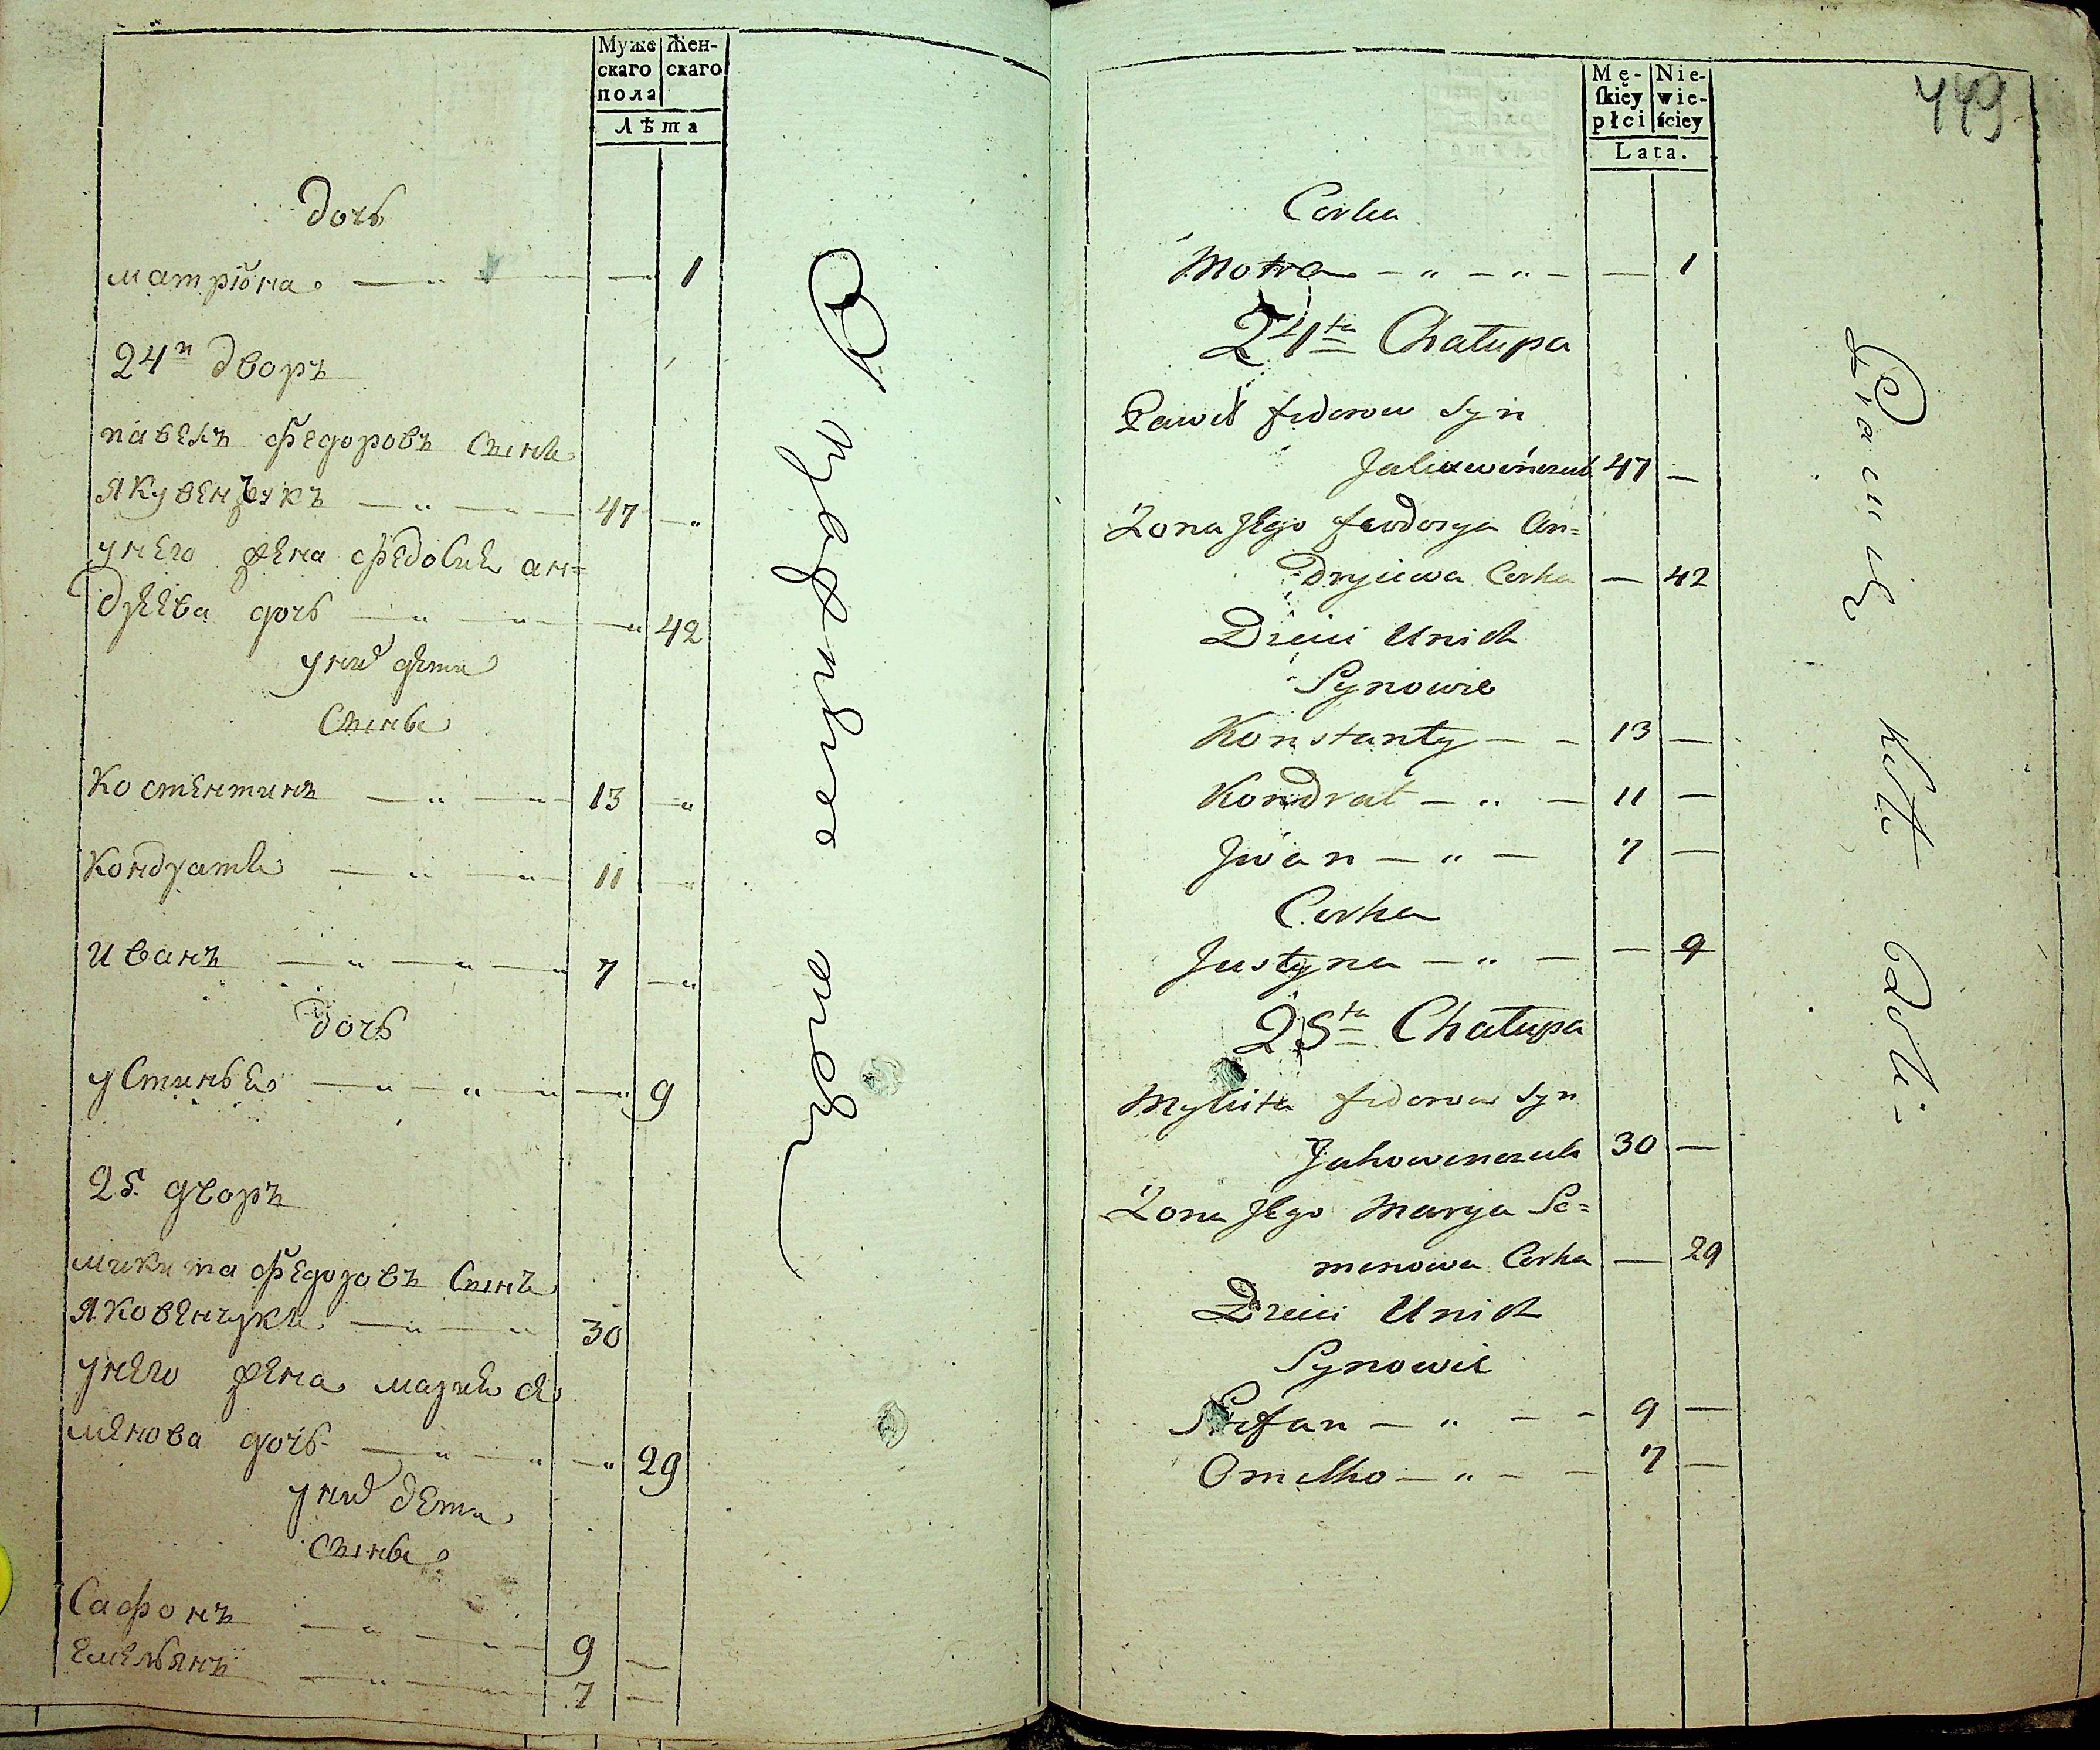 Муже Жен-
скаго скаго
пола
Лѣта
дочь
матрiона — " — — 1
24й дворъ
павелъ федоровъ Сынъ
якувенчукъ — " — 47 — "
унего жена федосия ан=
дреева дочь — " — " 42
уних дети
Сыны
Костентинъ — " — 13 — "
Кондратъ — " — 11 —
Иванъ — " — " — 7 — "
дочь
устинья — " — " — — 9
25. дворъ
микита федоровъ Сынъ
яковенчукъ — " — 30
унего жена мария се
менова дочь — " — " — " 29
уних дети
сыны
Сафонъ — " — 9 —
Емельянъ — " — 7 —
Mę- Nie-
ſkiey wie-
płci ściey
Lata.
449
Corka
Motra — " — " — — 1
24ta Chałupa
Paweł fedorow Syn
47 —
Zona Jego feodosya An=
dryiewa Corka — 42
Dzieci Unich
Synowie
Konstanty — — 13 —
Kondrat — " — 11 —
Jwan — " — 7 —
Corka
Justyna — " — — 9
25ta Chałupa
Mykita fedorow Syn
Jakowenczuk 30 —
Zona Jego Marya Se=
menowa Corka — 29
Dzieci Unich
Synowie
Stefan — " — — 9 —
Omelko — " — — 7 —